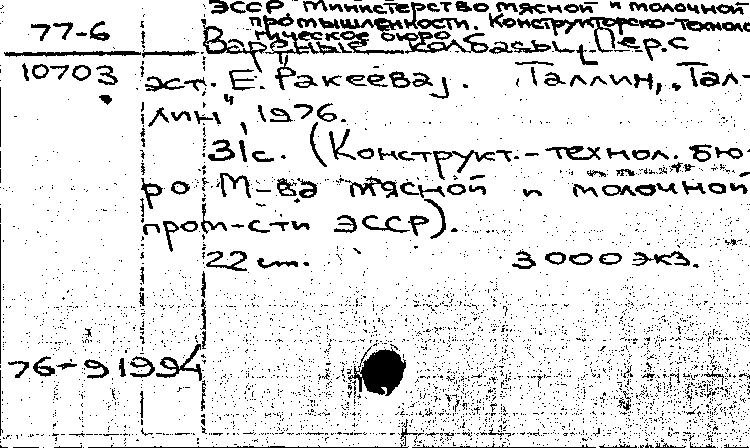 ЭССР Министерство мясной и молочной
промышленности. Конструкторско-техноло
гическое бюро
77-6
Вареные колбасы, [Пер. с
10703
эст. Е. Ракеева]. Таллин, "Тал-
лин", 1976.
31с. (Конструкт.-технол. бю-
ро М-ва мясной и молочной
пром-сти ЭССР).
22 см. 3000 экз.
76-91994